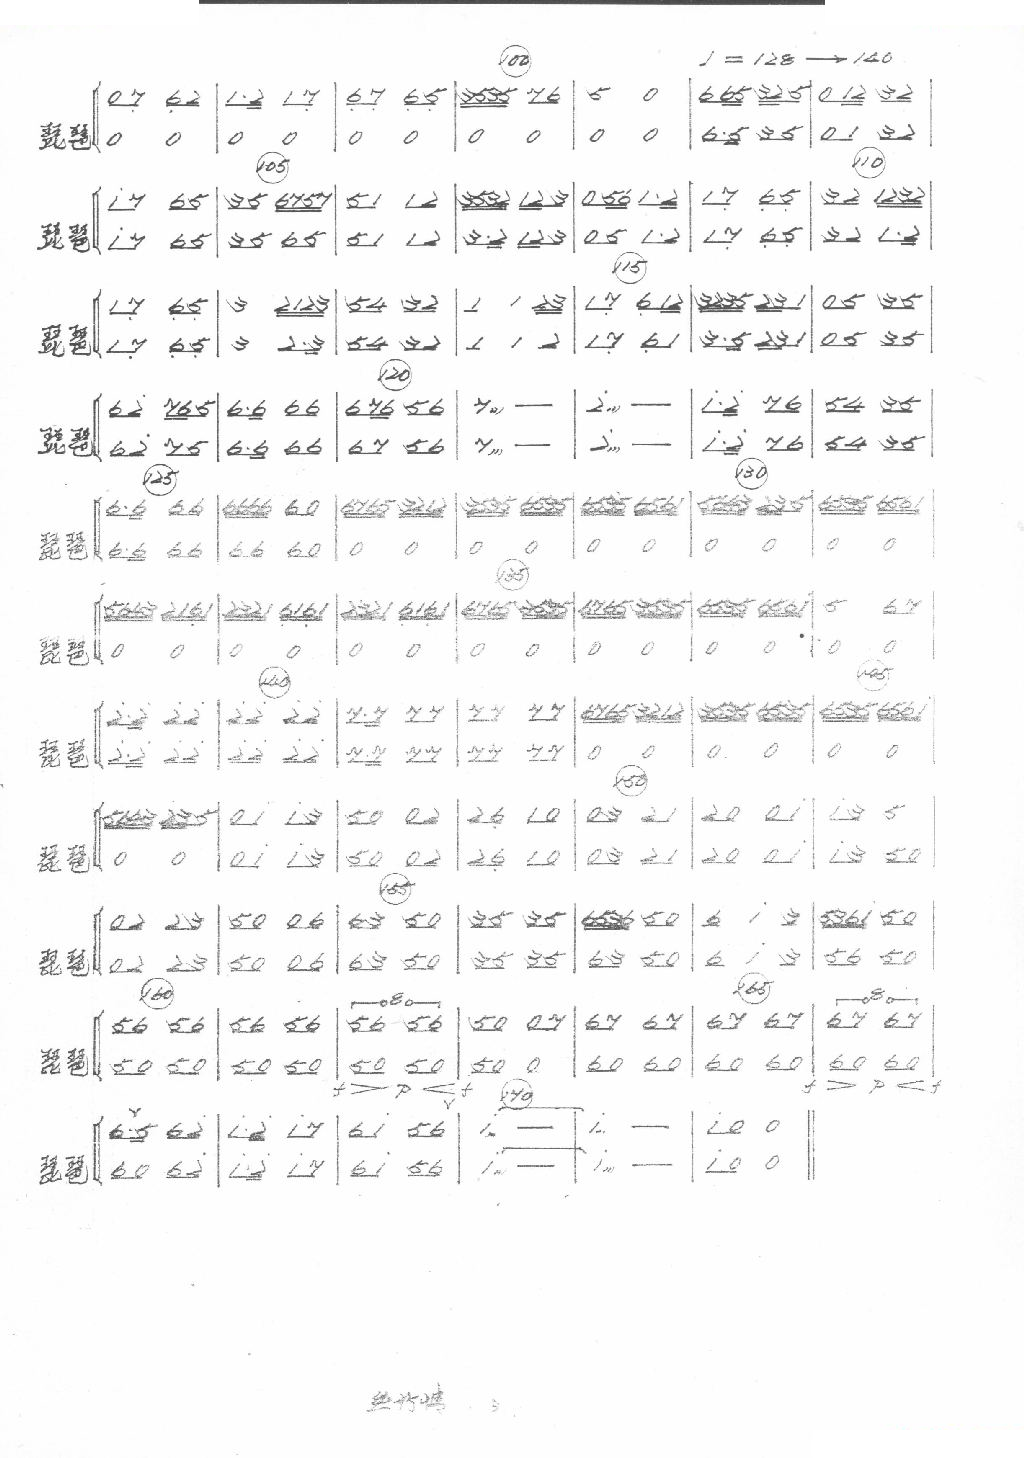 100 ♩ = 128 → 140
07 62 | 1·2 17 | 67 65 | 3535 76 | 5 0 | 665 325 | 012 32
琵琶 0 0 | 0 0 | 0 0 | 0 0 | 0 0 | 6·5 35 | 01 32
105 110
17 65 | 35 6757 | 51 12 | 3532 123 | 056 1·2 | 17 65 | 32 1232
琵琶 17 65 | 35 65 | 51 12 | 3·2 123 | 05 1·2 | 17 65 | 32 1·2
115
17 65 | 3 2123 | 54 32 | 1 1 23 | 17 612 | 3235 231 | 05 35
琵琶 17 65 | 3 2·3 | 54 32 | 1 1 2 | 17 61 | 3·5 231 | 05 35
120
62 765 | 6·6 66 | 676 56 | 7 — | 2 — | 1·2 76 | 54 35
琵琶 62 75 | 6·6 66 | 67 56 | 7 — | 2 — | 1·2 76 | 54 35
125 130
6·6 66 | 6666 60 | 6765 3212 | 3535 6535 | 6535 6561 | 235 | 6535 6561
琵琶 6·6 66 | 66 60 | 0 0 | 0 0 | 0 0 | 0 0 | 0 0
135
2161 | 2321 6161 | 2321 6161 | 6765 3535 | 6765 3535 | 6535 6561 | 5 67
琵琶 0 0 | 0 0 | 0 0 | 0 0 | 0 0 | 0 0 | 0 0
140 145
2·2 22 | 22 22 | 7·7 77 | 77 77 | 6765 3212 | 3535 6535 | 6535 6561
琵琶 2·2 22 | 22 22 | 7·7 77 | 77 77 | 0 0 | 0 0 | 0 0
150
235 | 01 13 | 50 02 | 26 10 | 03 21 | 20 01 | 13 5
琵琶 0 0 | 01 13 | 50 02 | 26 10 | 03 21 | 20 01 | 13 50
155
02 23 | 50 06 | 63 50 | 35 35 | 6536 50 | 6 1 3 | 5361 50
琵琶 02 23 | 50 06 | 63 50 | 35 35 | 63 50 | 6 1 3 | 56 50
160 8 165 8
56 56 | 56 56 | 56 56 | 50 07 | 67 67 | 67 67 | 67 67
琵琶 50 50 | 50 50 | 50 50 | 50 0 | 60 60 | 60 60 | 60 60
f > p < f 170 f > p < f
6·5 62 | 1·2 17 | 61 56 | 1 — | 1 — | 10 0
琵琶 60 62 | 1·2 17 | 61 56 | 1 — | 1 — | 10 0
3